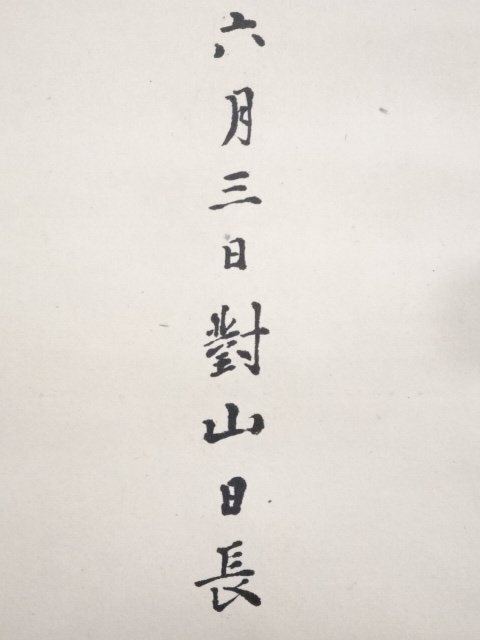 六月三日對山日長